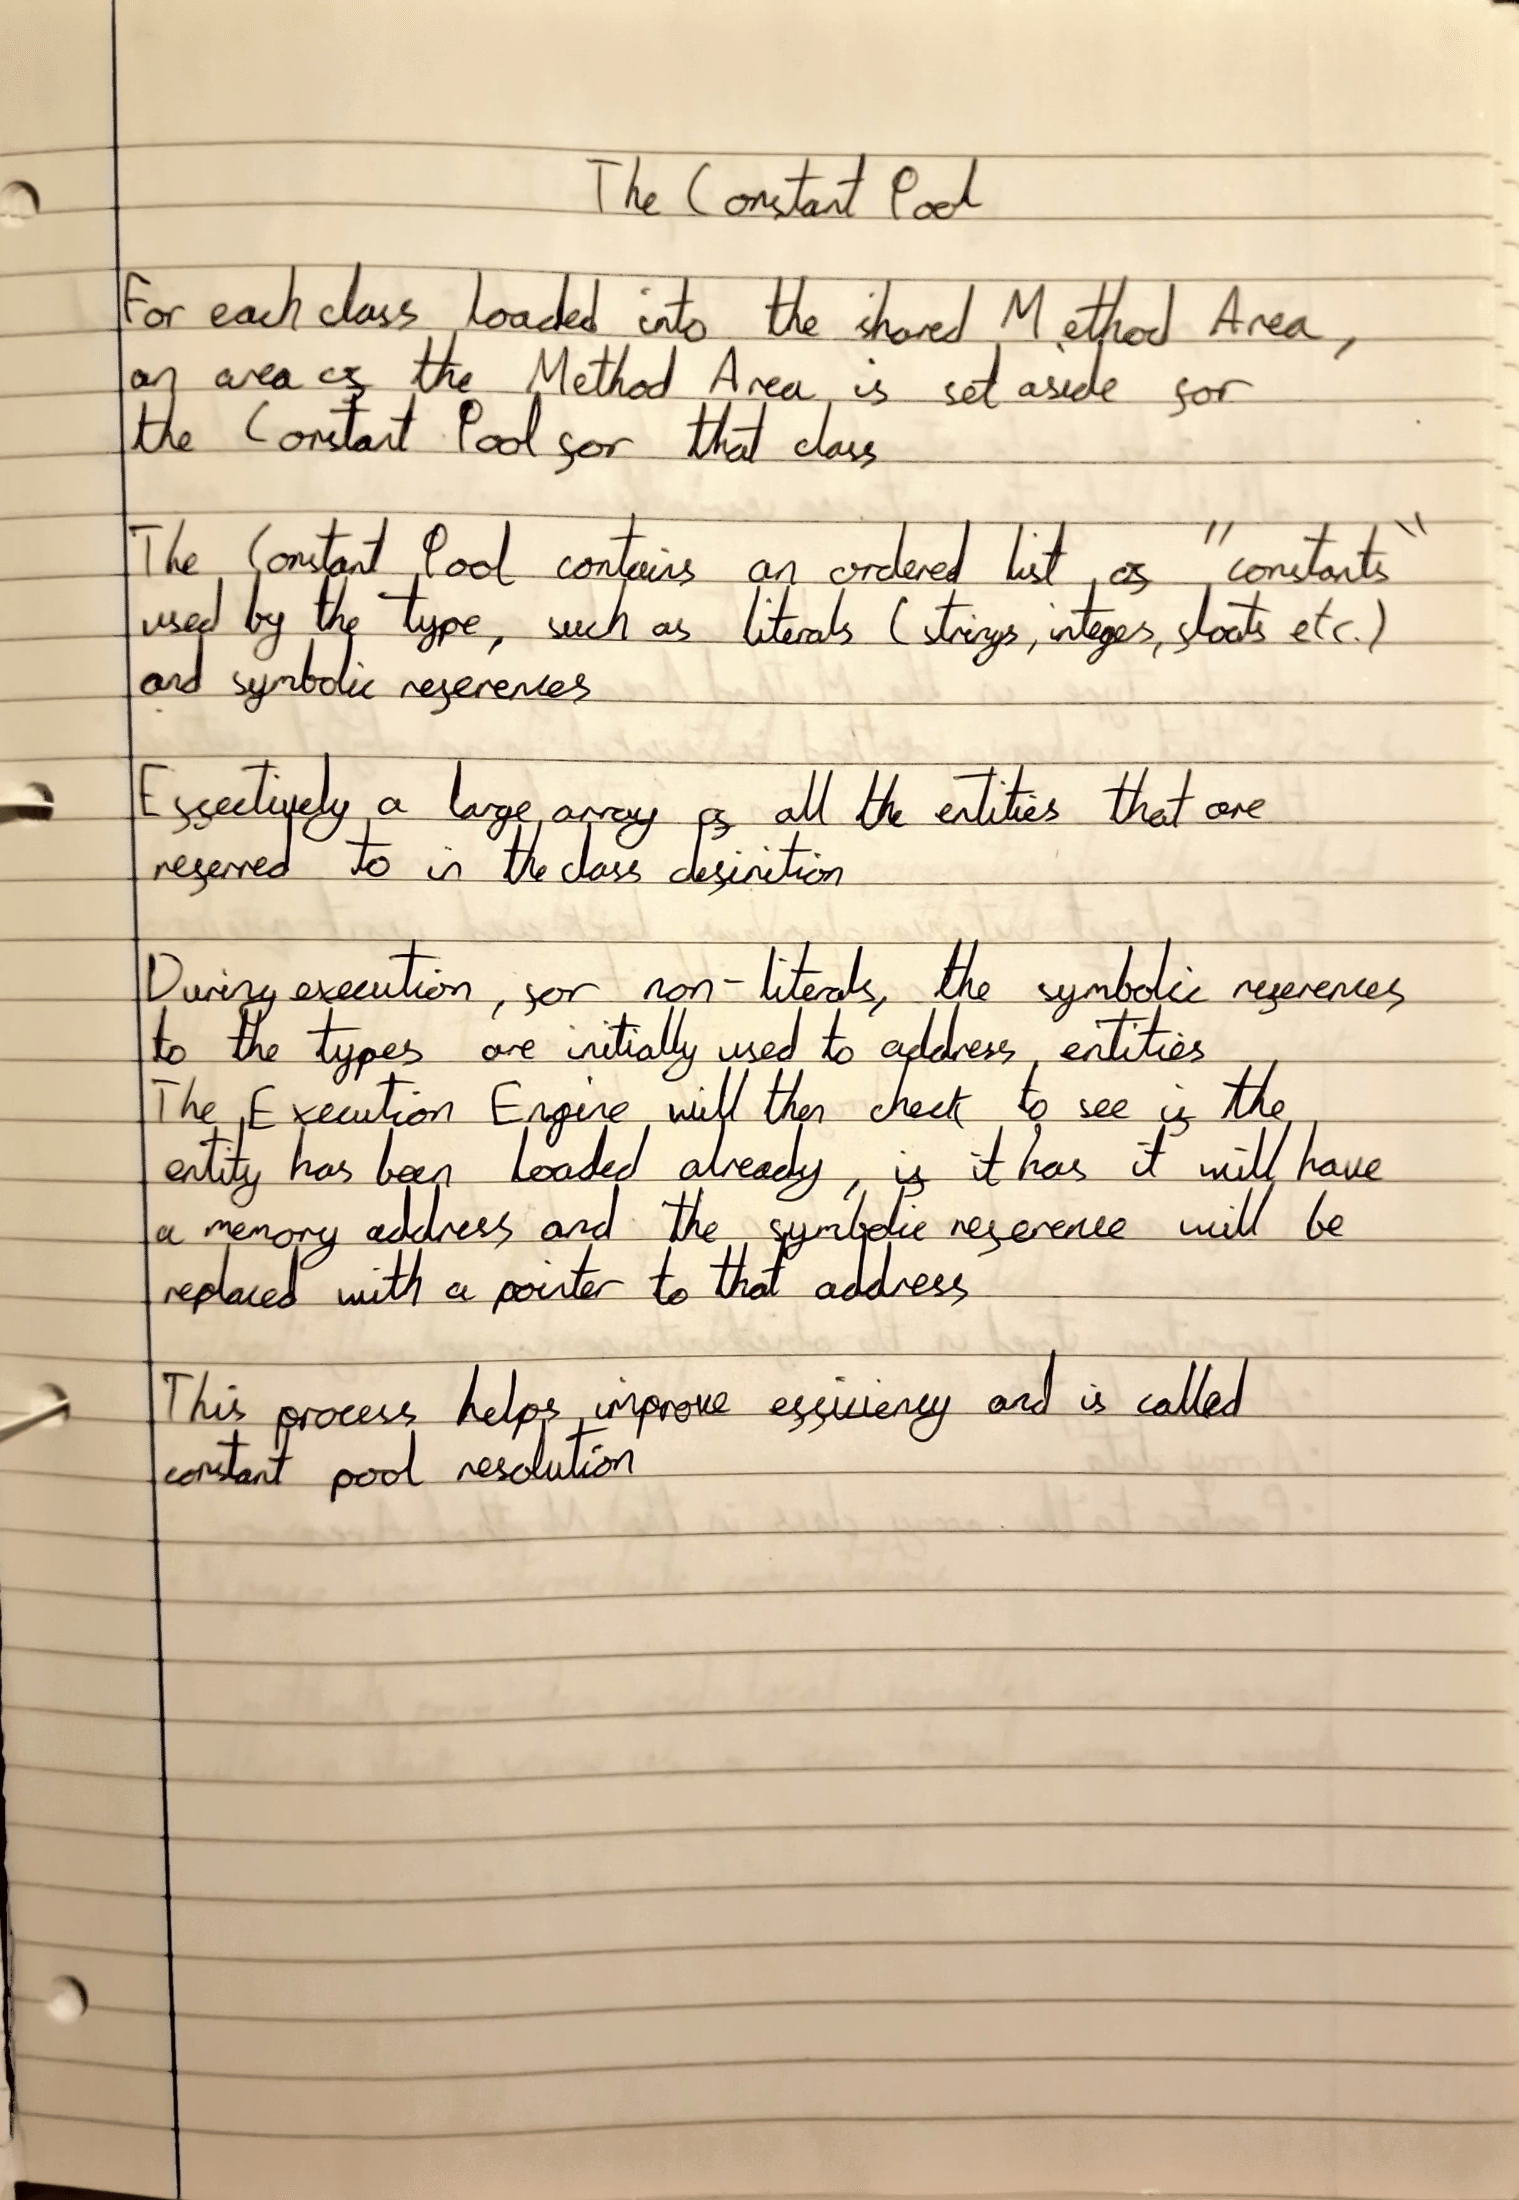 The Constant Pool
For each class loaded into the shared Method Area,
an area of the Method Area is set aside for
the Constant Pool for that class
The Constant Pool contains an ordered list of "constants"
used by the type, such as literals (strings, integers, floats etc.)
and symbolic references
Effectively a large array of all the entities that are
referred to in the class definition
During execution, for non-literals, the symbolic references
to the types are initially used to address entities
The Execution Engine will then check to see if the
entity has been loaded already, if it has it will have
a memory address and the symbolic reference will be
replaced with a pointer to that address
This process helps improve efficiency and is called
constant pool resolution